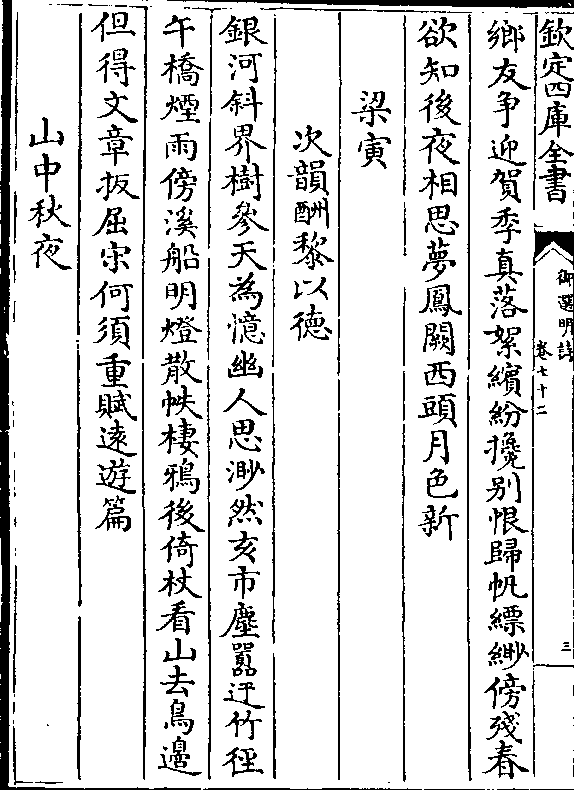 欽定四庫全書
御選明詩
卷七十二
三
鄉友争迎賀季真落絮繽紛攙别恨歸帆縹緲傍殘春
欲知後夜相思夢鳳闕西頭月色新
梁寅
次韻酬黎以德
銀河斜界樹參天為憶幽人思渺然亥市塵囂迂竹徑
午橋煙雨傍溪船明燈散帙棲鴉後倚杖看山去鳥邊
但得文章扳屈宋何須重賦遠遊篇
山中秋夜